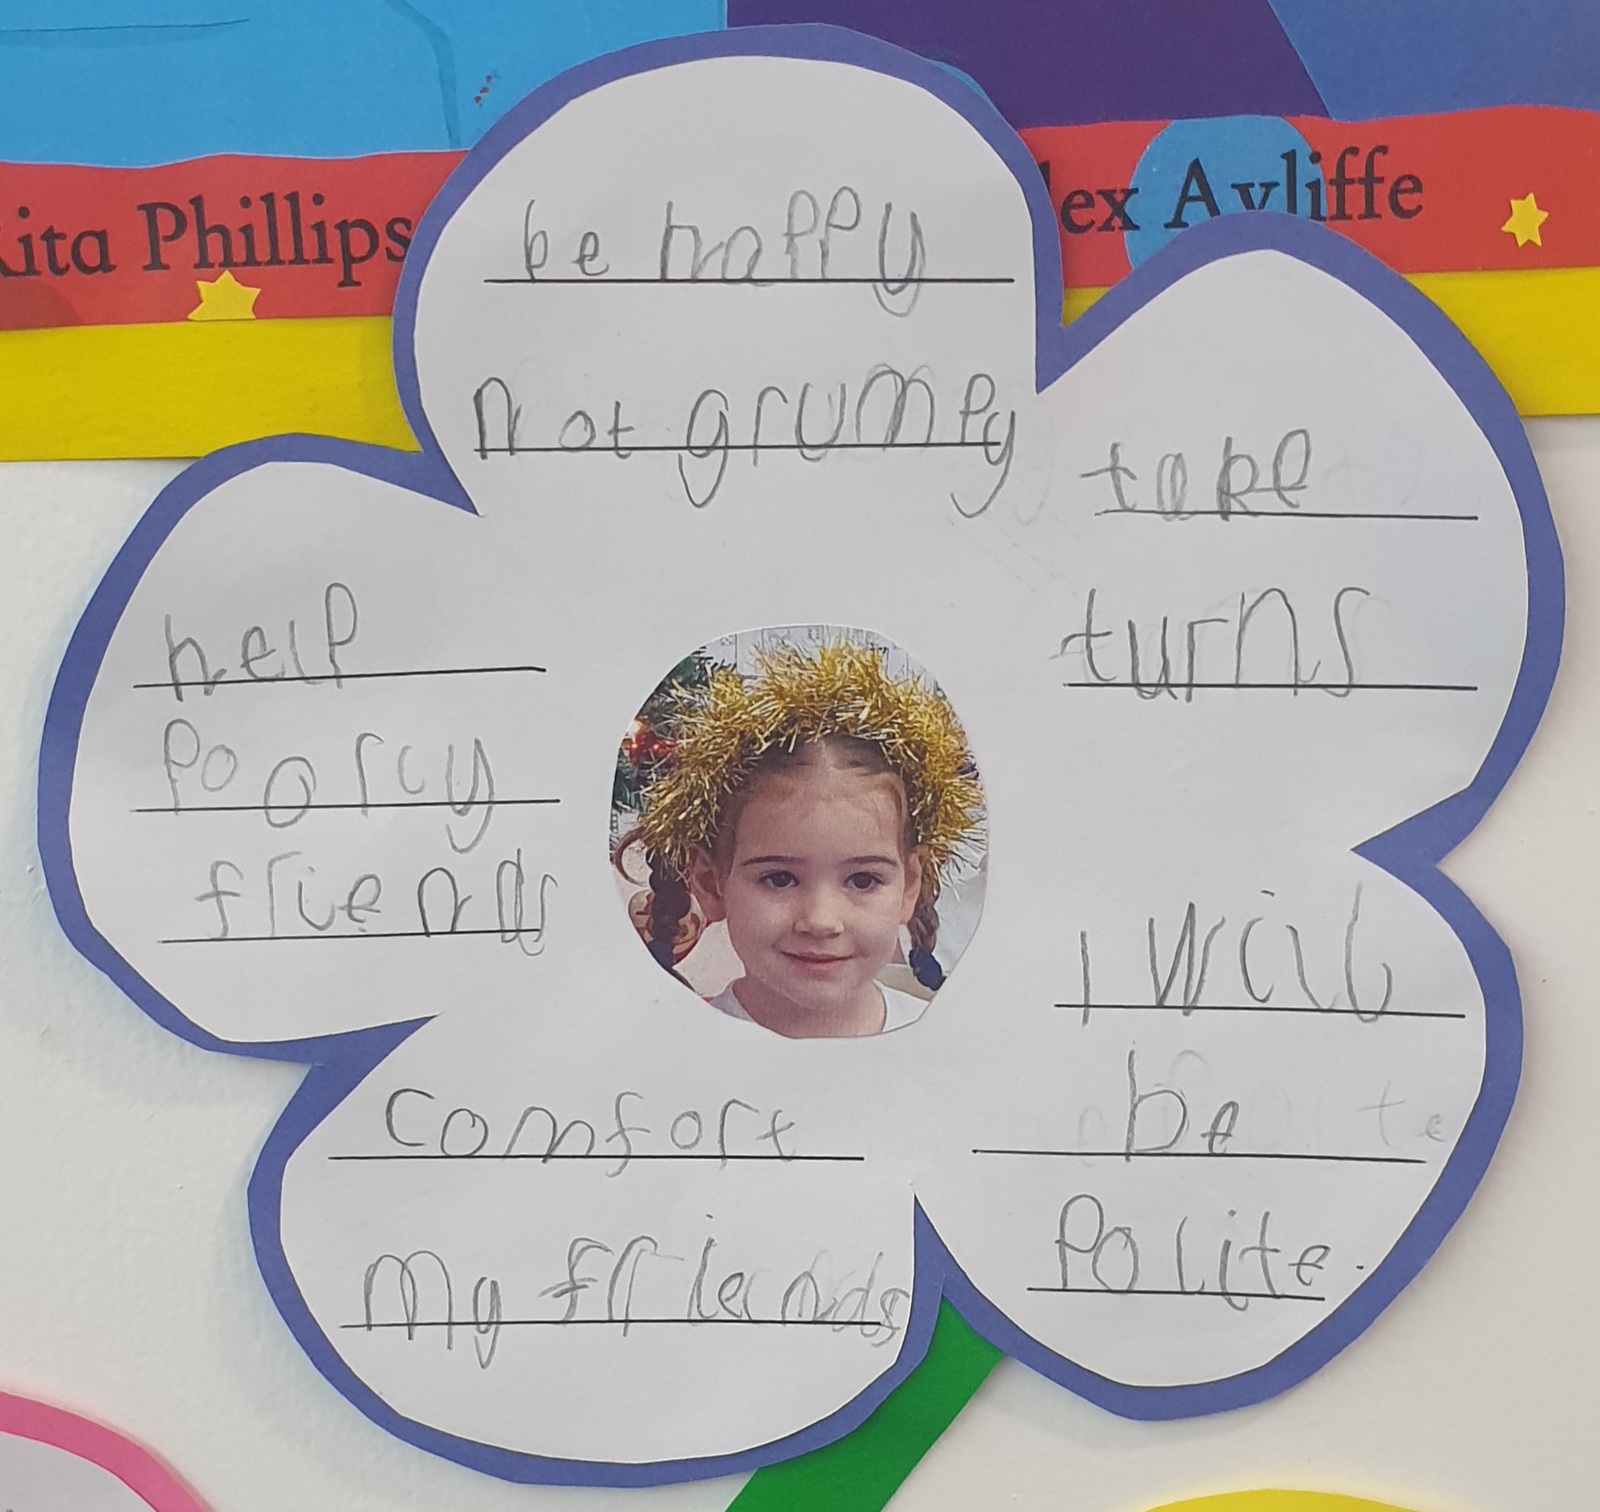 ita Phillips
ex Ayliffe
be happy
not grumpy
take
turns
help
poorly
friends
I will
be
polite.
comfort
my friends